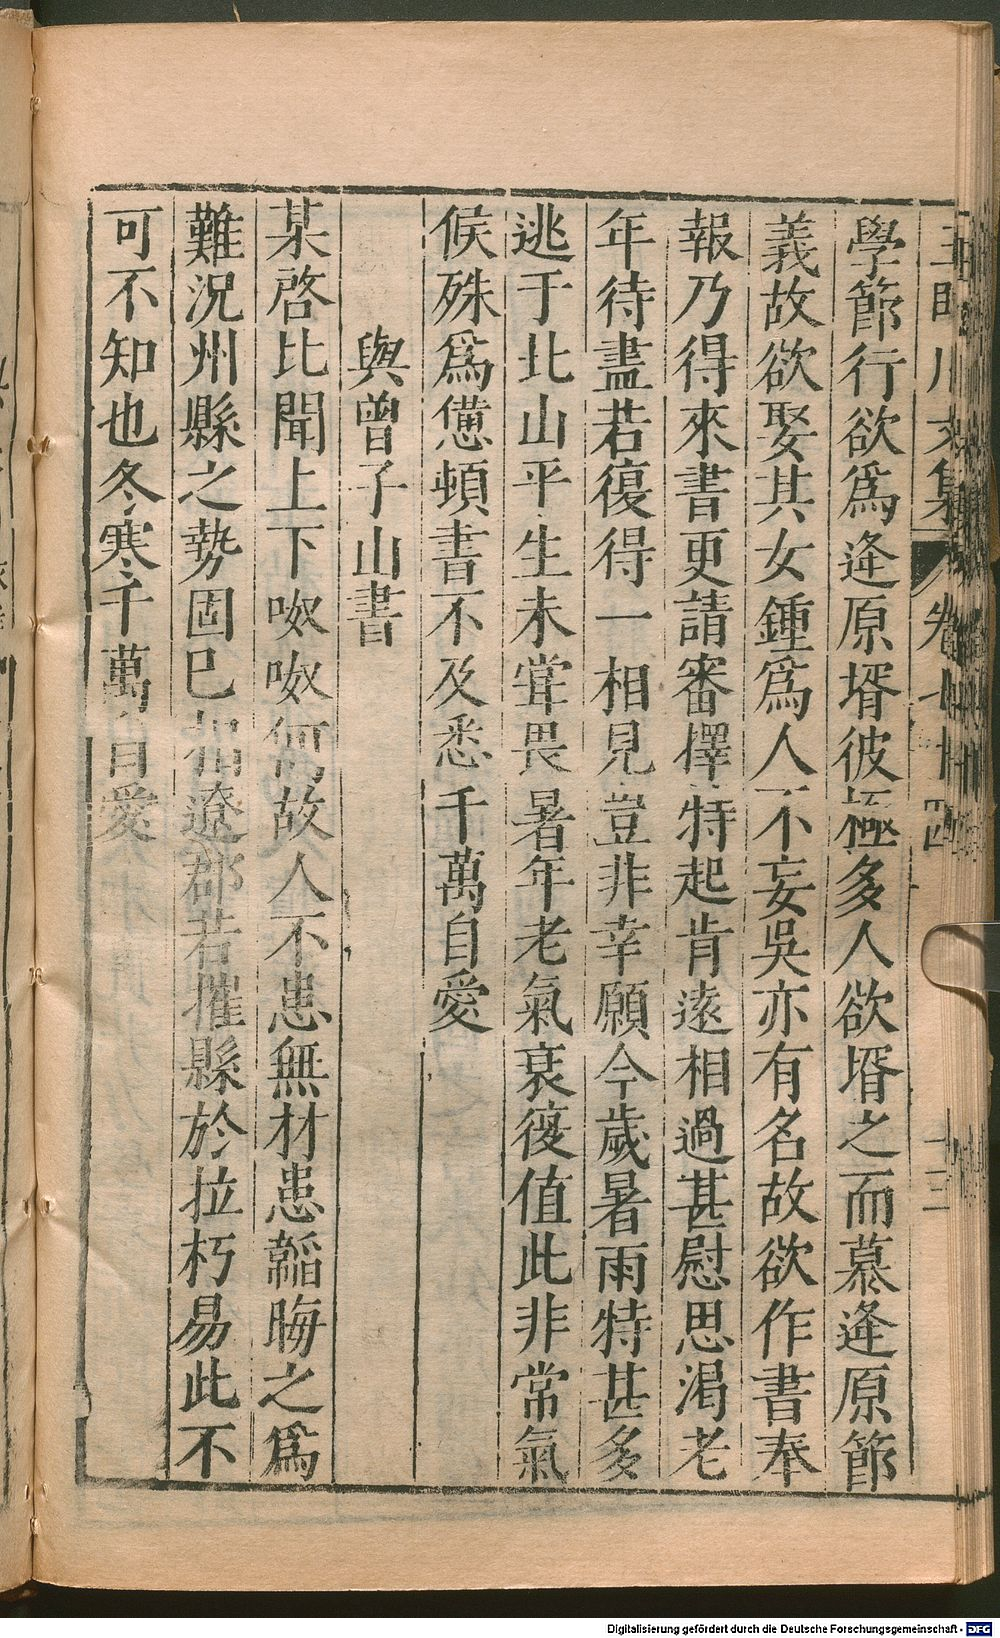 王臨川文集 卷七十四 十三
學節行欲爲逄原壻彼極多人欲壻之而慕逄原節
義故欲娶其女鍾爲人不妄吳亦有名故欲作書奉
報乃得來書更請審擇特起肯遠相過甚慰思渴老
年待盡若復得一相見豈非幸願今歲暑雨特甚多
逃于北山平生未甞畏暑年老氣衰復值此非常氣
候殊爲憊頓書不及悉千萬自愛
與曾子山書
某啓比聞上下呶呶何故人不患無材患韜晦之爲
難況州縣之勢固已相遼郡若摧縣於拉朽易此不
可不知也冬寒千萬自愛
Digitalisierung gefördert durch die Deutsche Forschungsgemeinschaft - DFG